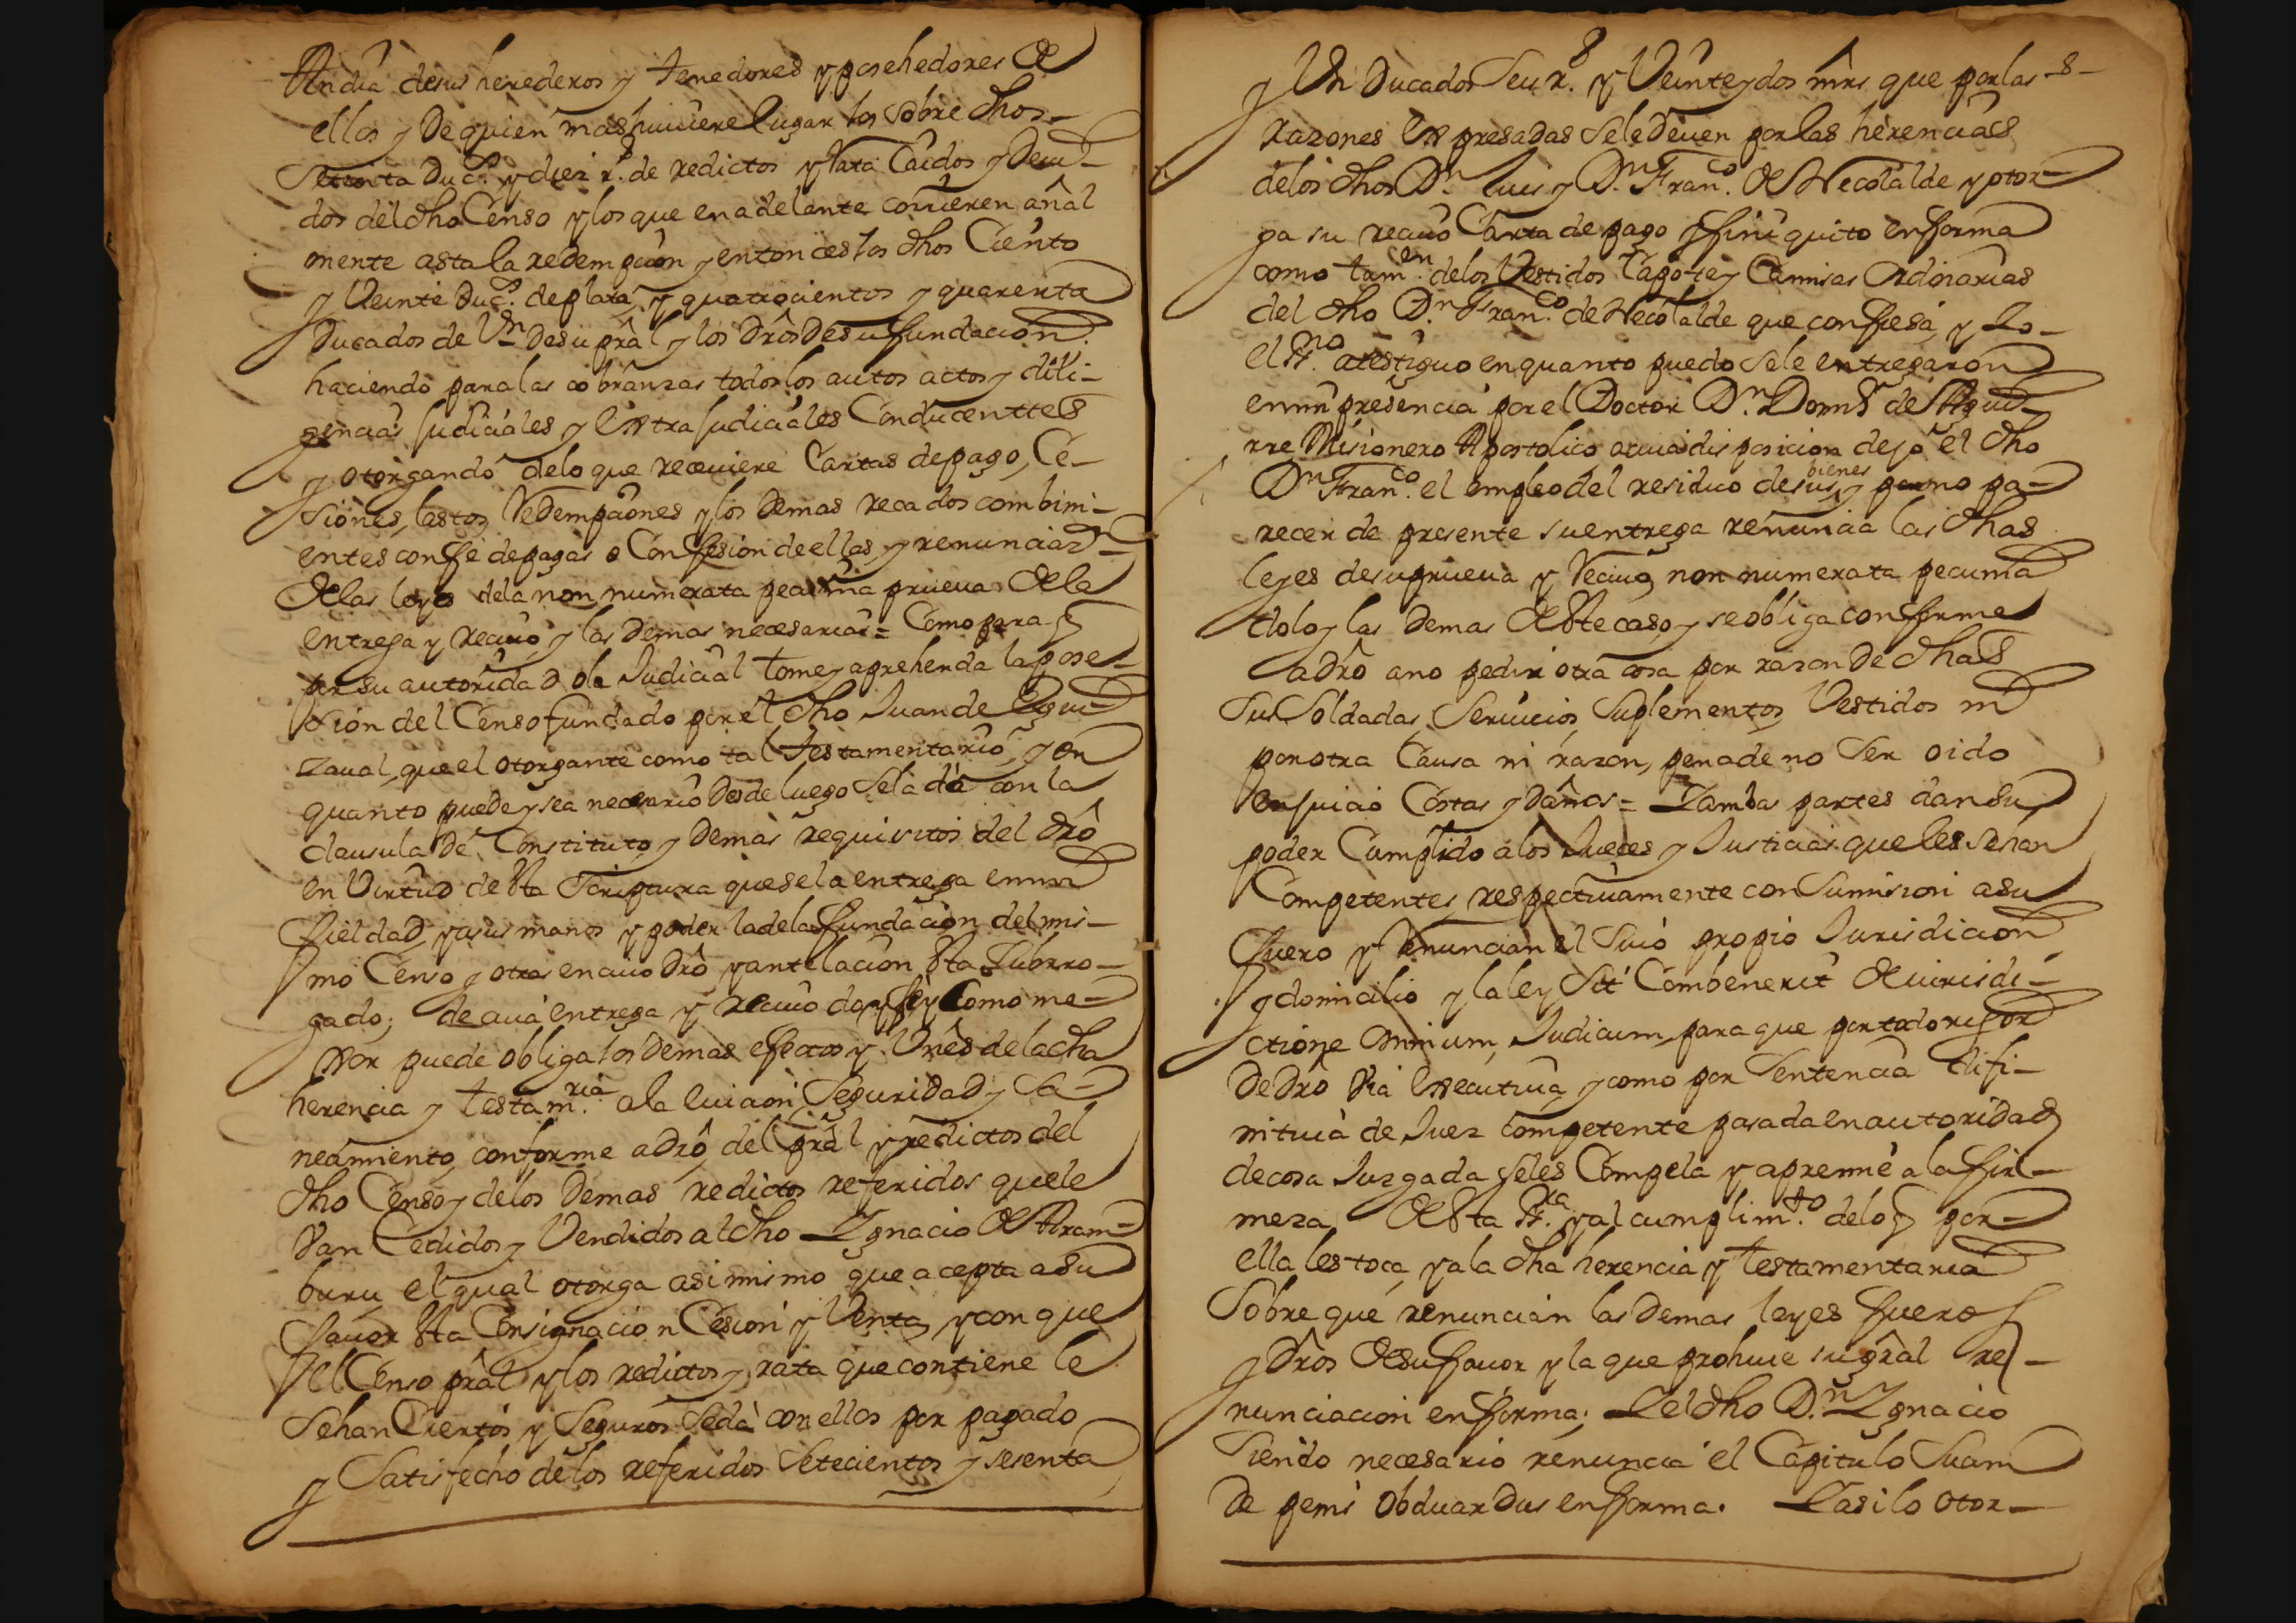 Andia de sus herederos y tenedores y posehedores de
ellos y de quien mas huuiere lugar los sobre dhos
Setenta Duc.s y diez r.s de redictos y Rata Caidos y Deui-
dos del dho Censo y los que en adelante corrieren añal
mente asta la redempcion y entonces los dhos Ciento
y Veinte Duc.s de plata, y quatrocientos y quarenta
Ducados de Vn de su prâl y los Drôs de su fundacion.
haciendo para las cobranzas todos los autos actos y dili-
gencias Judiciales y Extrajudiciales Conducenttes
y otorgando de lo que receuiere Cartas de pago, Ce-
siones, lastos, Redempciones y los demas recados combini-
entes con fè de pagas o Confesion de ellas y renunciaz.on
de las leyes de la non numerata pecunia prueua de la
entrega y reciuo y las demas necesarias = Como para q
por su autoridad o la Judicial tome y aprehenda la pose-
sion del Censo fundado por el dho Juan de Egui-
zaual, que el otorgante como tal Testamentario, y en
quanto puede y sea necesario Desde luego Se la dà con la
clausula de Constituto y demas requisitos del drô
en Virtud de esta Scriptura que se la entrega en mi
fieldad, y a sus manos y poder la de la fundacion del mis-
mo Censo y otras en cuio drô y antelacion esta Subrro-
gado; de cuia entrega y reciuo doy fèe y Como me-
xor puede obliga los demas efectos y Vnês de la dha
herencia y testam.ria a la euicion, Seguridad y Sa-
neamiento conforme a drô del prâl y redictos del
dho Censo y de los demas redictos referidos que le
Van Cedidos y Vendidos al dho Ygnacio de Aram-
buru el qual otorga asimismo que acepta a su
fauor esta Consignacion Cesion y Venta, y con que
el Censo prâl y los redictos y rata que contiene le
Sehan Ciertos y Seguros Se dà con ellos por pagado
y Satisfecho de los referidos Setecientos y sesenta
8
y Vn Ducados Seis r.s y Veinte y dos mrs que por las
razones Expresadas Se le Deuen por las herencias
de los dhos D.n Luis y D.n Fran.co de Necolalde y otor-
ga su reciuo Carta de pago y finiquito en forma
como tam.en de los Vestidos Capote y Camisas Ordinarias
del dho D.n Fran.co de Necolalde que confiesa, y Yo
el Ss.no atestiguo en quanto puedo Se le entregaron
en mi presencia por el Doctor D.n Dom.o de Aguir-
rre Misionero Apostolico a cuia disposicion dejò el dho
D.n Fran.co el empleo del residuo de sus bienes y por no pa-
recer de presente su entrega renuncia las dhas
leyes de su prueua y Reciuo, non numerata pecunia
dolo y las demas de este caso y se obliga conforme
a drô a no pedir otra cosa por razon De dhas
Sus Soldadas, Seruicios, Suplementos, Vestidos ni
por otra Causa ni razon, pena de no Ser oido
en juicio Costas y daños = Y ambas partes dan su
poder Cumplido a los Jueces y Justicias que les Sehan
Competentes respectiuamente con Sumision a su
fuero y renuncian el Suio propio Jurisdicion
y domicilio y la ley Sit Combenerit de iurisdi-
ctione omnium Judicum, para que por todo rigor
De Drô Via Executiua, y como por Sentencia difi-
nitiua de Juez Competente pasada en autoridad
de cosa Juzgada se les Compela y apremie a la fir-
meza de esta Ss.ra y al cumplim.to de lo q por
ella les toca, y a la dha herencia y testamentaria
Sobre que renuncian las demas leyes fueros
y Drôs de su fauor y la que prohiue su grâl re-
nunciacion en forma; Y el dho D.n Ygnacio
Siendo necesario renuncia el Capitulo Suam
de penis Obduardus en forma. Y asi lo otor-